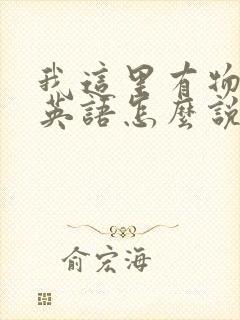 我這里有物
英語怎麼說
俞宏海